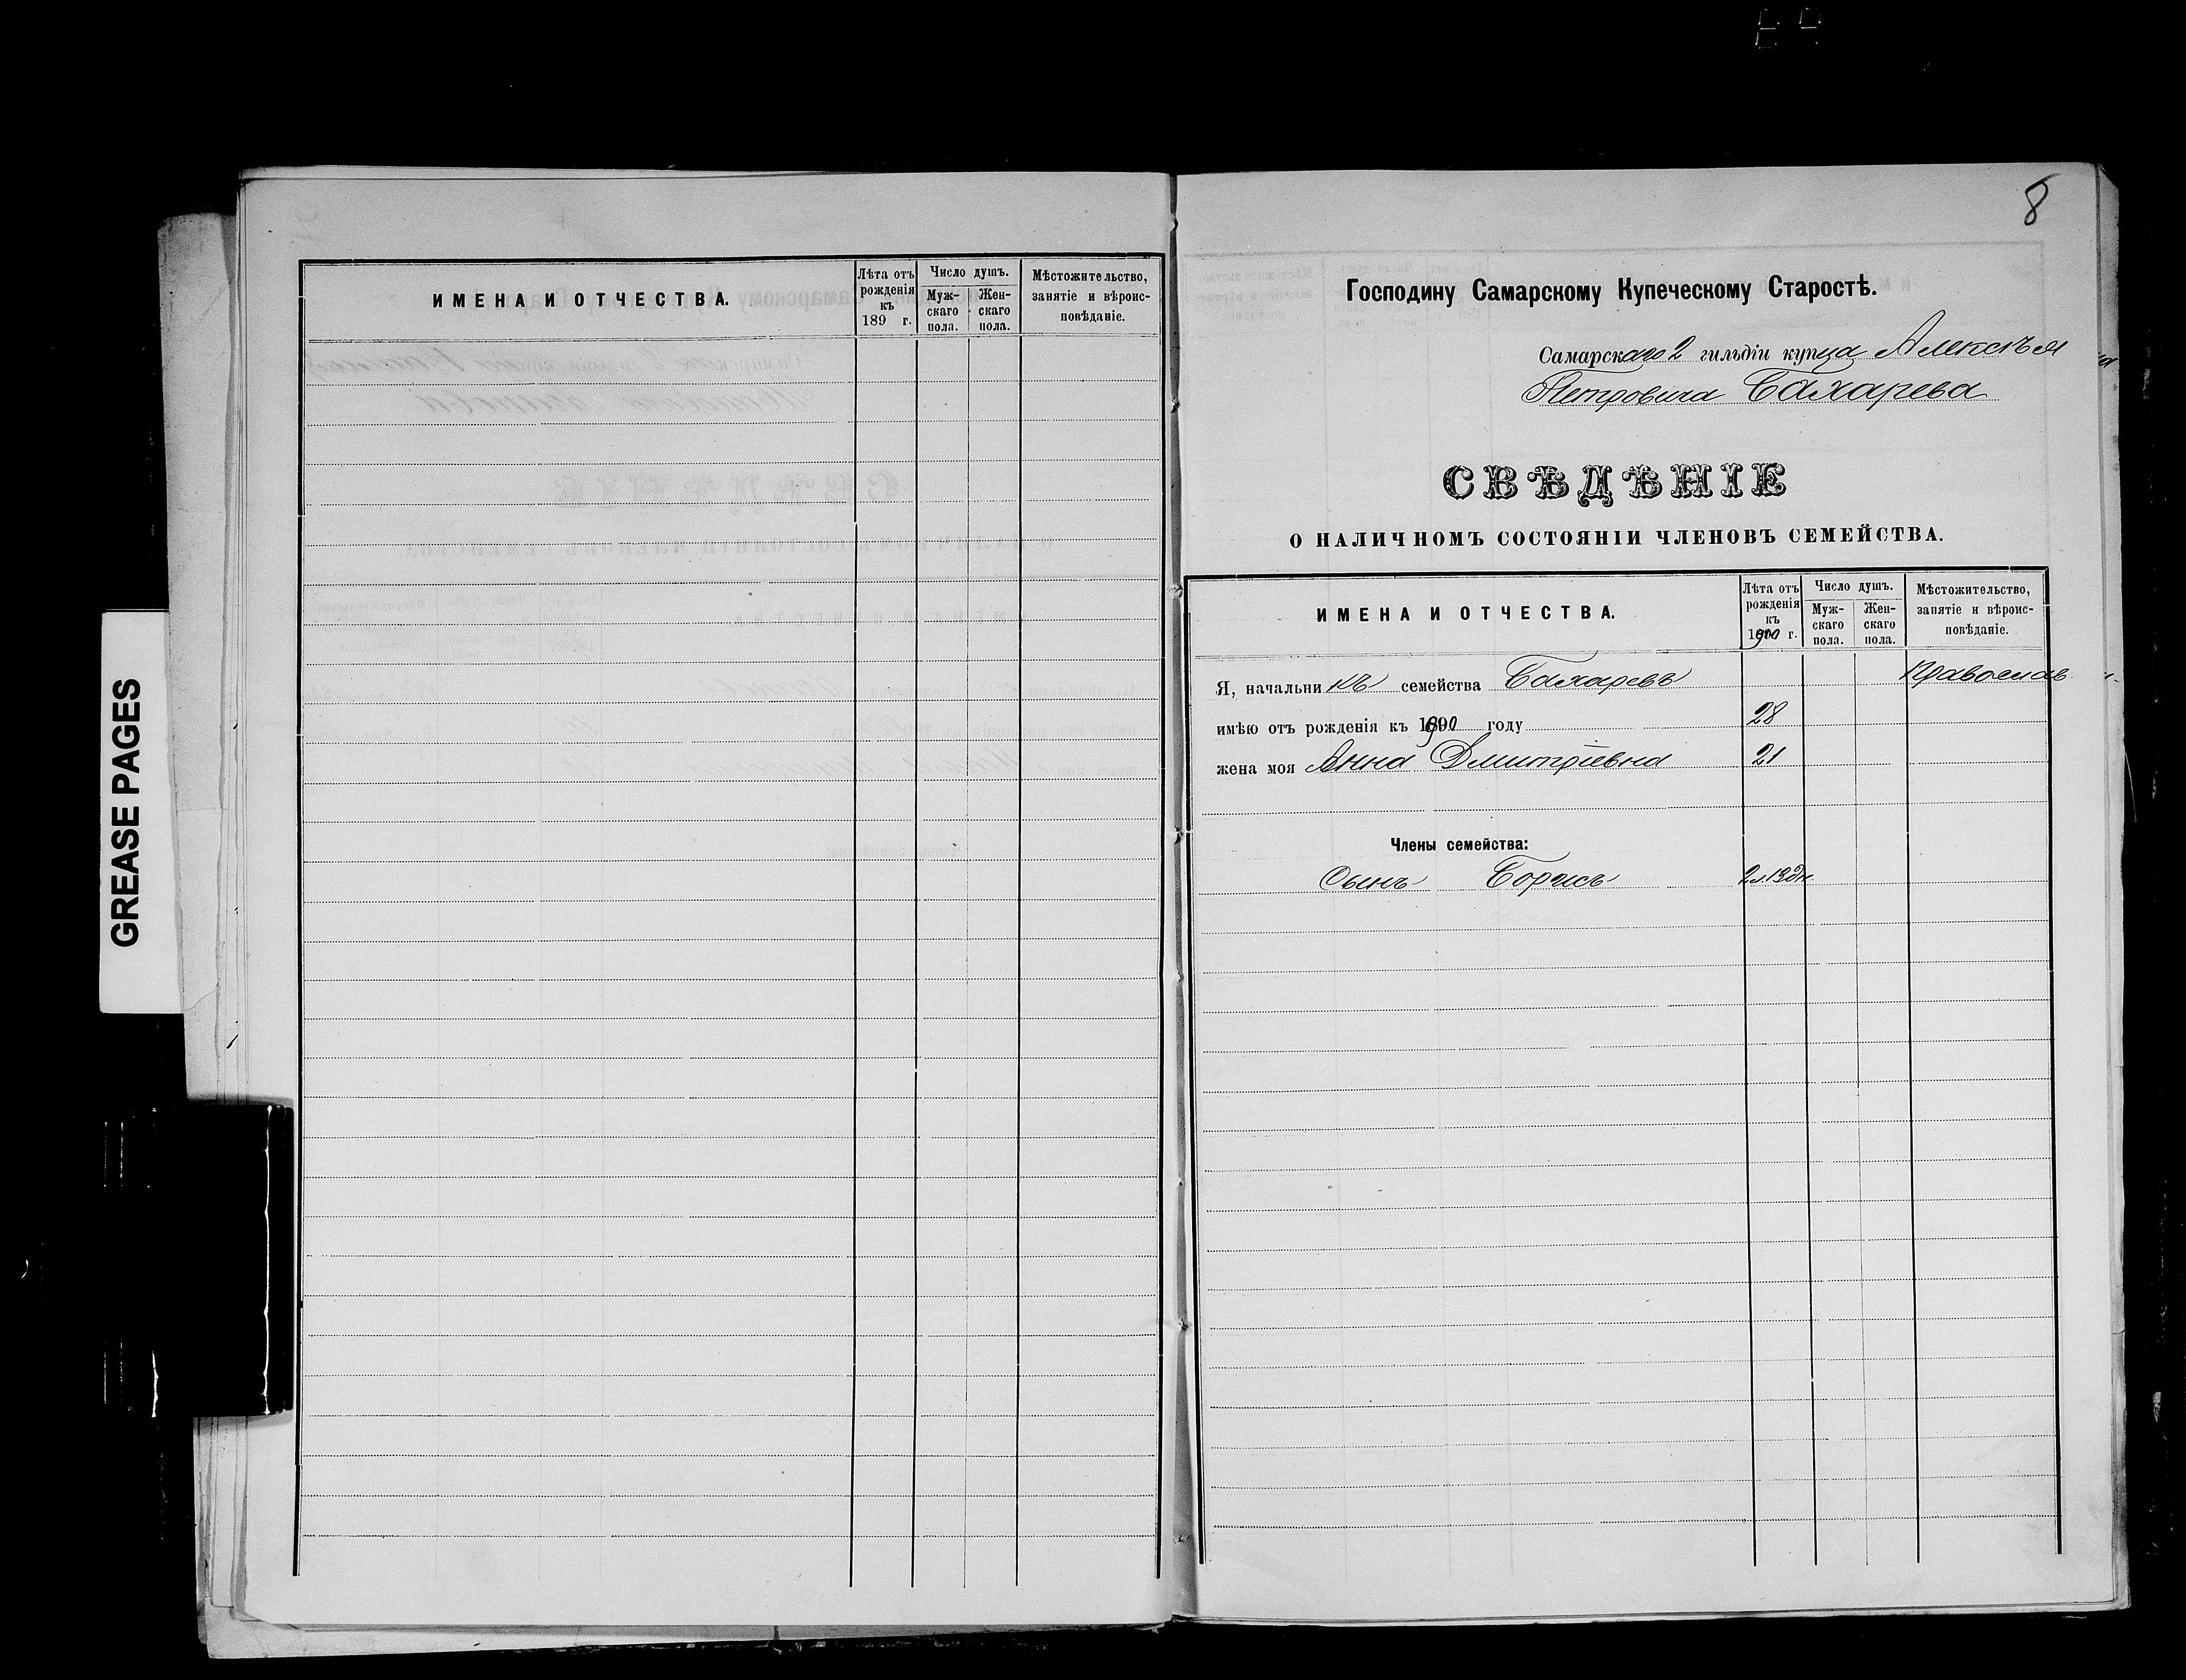 GREASE PAGES
ИМЕНА И ОТЧЕСТВА.
Лѣта отъ рожденія къ 189 г.
Число душъ.
Мужскаго пола.
Женскаго пола.
Мѣстожительство, занятіе и вѣроисповѣданіе.
8
Господину Самарскому Купеческому Старостѣ.
Самарскаго 2 гильдіи купца Алексѣя
Петровича Бахарева
СВѢДѢНІЕ
О НАЛИЧНОМЪ СОСТОЯНІИ ЧЛЕНОВЪ СЕМЕЙСТВА.
ИМЕНА И ОТЧЕСТВА.
Лѣта отъ рожденія къ 1900 г.
Число душъ.
Мужскаго пола.
Женскаго пола.
Мѣстожительство, занятіе и вѣроисповѣданіе.
Я, начальникъ семейства Бахаревъ Православ
имѣю отъ рожденія къ 1900 году 28
жена моя Анна Дмитріевна 21
Члены семейства:
Сынъ Борисъ 2 л. 13 дн.